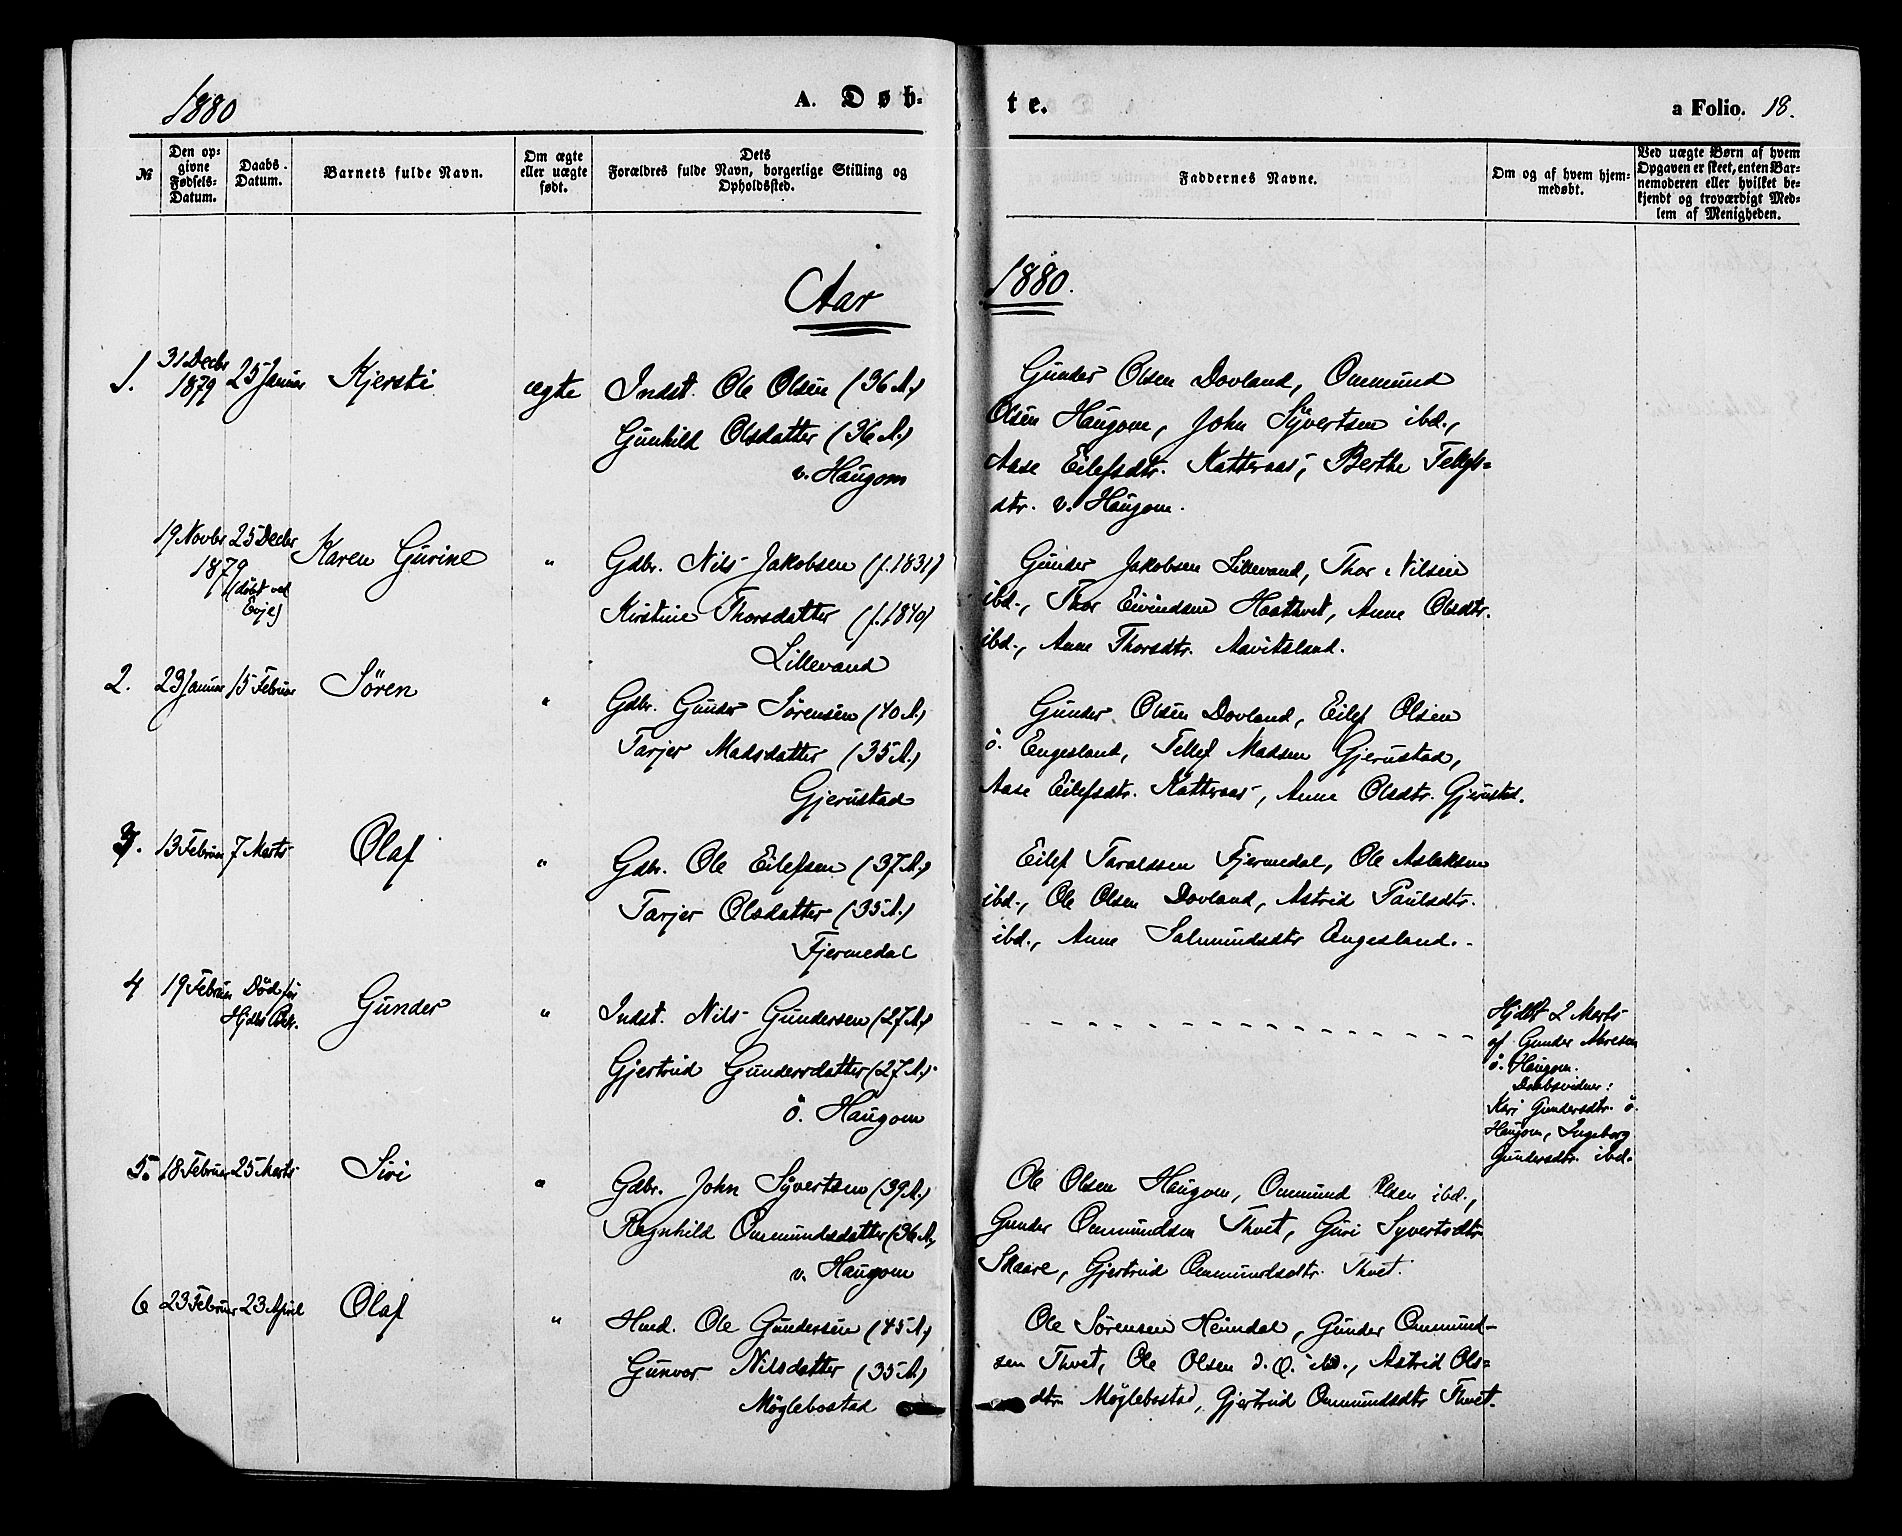 1880
A. Døb-
te.
a Folio. 18.
№
Den op-
givne
Fødsels-
Datum.
Daabs-
Datum.
Barnets fulde Navn.
Om ægte
eller uægte
født.
Dets
Forældres fulde Navn, borgerlige Stilling og
Opholdssted.
Faddernes Navne.
Om og af hvem hjem-
medøbt.
Ved uægte Børn af hvem
Opgaven er skeet, enten Bar-
nemoderen eller hvilket be-
kjendt og troværdigt Med-
lem af Menigheden.
Aar 1880.
1. 31 Decbr 1879 25 Januar Kjersti ægte Indst. Ole Olsen (36 A.)
Gunhild Olsdatter (36 A.)
v. Haugom
Gunder Olsen Dovland, Ommund
Olsen Haugom, John Syvertsen ibd.,
Aase Eilefsdtr. Katteraas, Berthe Tellefs-
dtr. v. Haugom.
19 Novbr 1879 25 Decbr (døbt ved Evje) Karen Gurine " Gdbr. Nils Jakobsen (f. 1831)
Kirstine Thorsdatter (f. 1840)
Lillevand
Gunder Jakobsen Lillevand, Thor Nilsen
ibd., Thor Eivindsen Haathvet, Anne Olsdtr.
ibd., Anne Thorsdtr. Aavitsland.
2. 23 Januar 15 Februar Sören " Gdbr. Gunder Sørensen (40 A.)
Tarjer Madsdatter (35 A.)
Gjerustad
Gunder Olsen Dovland, Eilef Olsen
ö. Engesland, Tellef Madsen Gjerustad,
Aase Eilefsdtr. Katteraas, Anne Olsdtr. Gjerustad.
3. 13 Februar 7 Marts Olaf " Gdbr. Ole Eilefsen (37 A.)
Tarjer Olsdatter (35 A.)
Fjermedal
Eilef Taraldsen Fjermedal, Ole Aslaksen
ibd., Ole Olsen Dovland, Astrid Paulsdtr.
ibd., Anne Salmundsdtr Engesland.
4 19 Februar Död før Hjdbs Bek. Gunder " Indst. Nils Gundersen (27 A.)
Gjertrud Gundersdatter (27 A.)
ö. Haugom
Hjdbt 2 Marts
af Gunder
ö. Haugom.
Daabsvidner:
Kari Gundersdtr. ö.
Haugom, Ingeborg
Gundersdtr. ibd.
5. 18 Februar 25 Marts Siri " Gdbr. John Syvertsen (39 A.)
Ragnhild Ommundsdatter (36 A.)
v. Haugom
Ole Olsen Haugom, Ommund Olsen ibd.,
Gunder Ommundsen Thvet, Guri Syvertsdtr
Skaare, Gjertrud Ommundsdtr. Thvet.
6 23 Februar 23 April Olaf " Hmd. Ole Gundersen (45 A.)
Gunvor Nilsdatter (35 A.)
Møglebostad
Ole Sørensen Heimdal, Gunder Ommund-
sen Thvet, Ole Olsen Astrid Ols-
dtr. Møglebostad, Gjertrud Ommundsdtr Thvet.